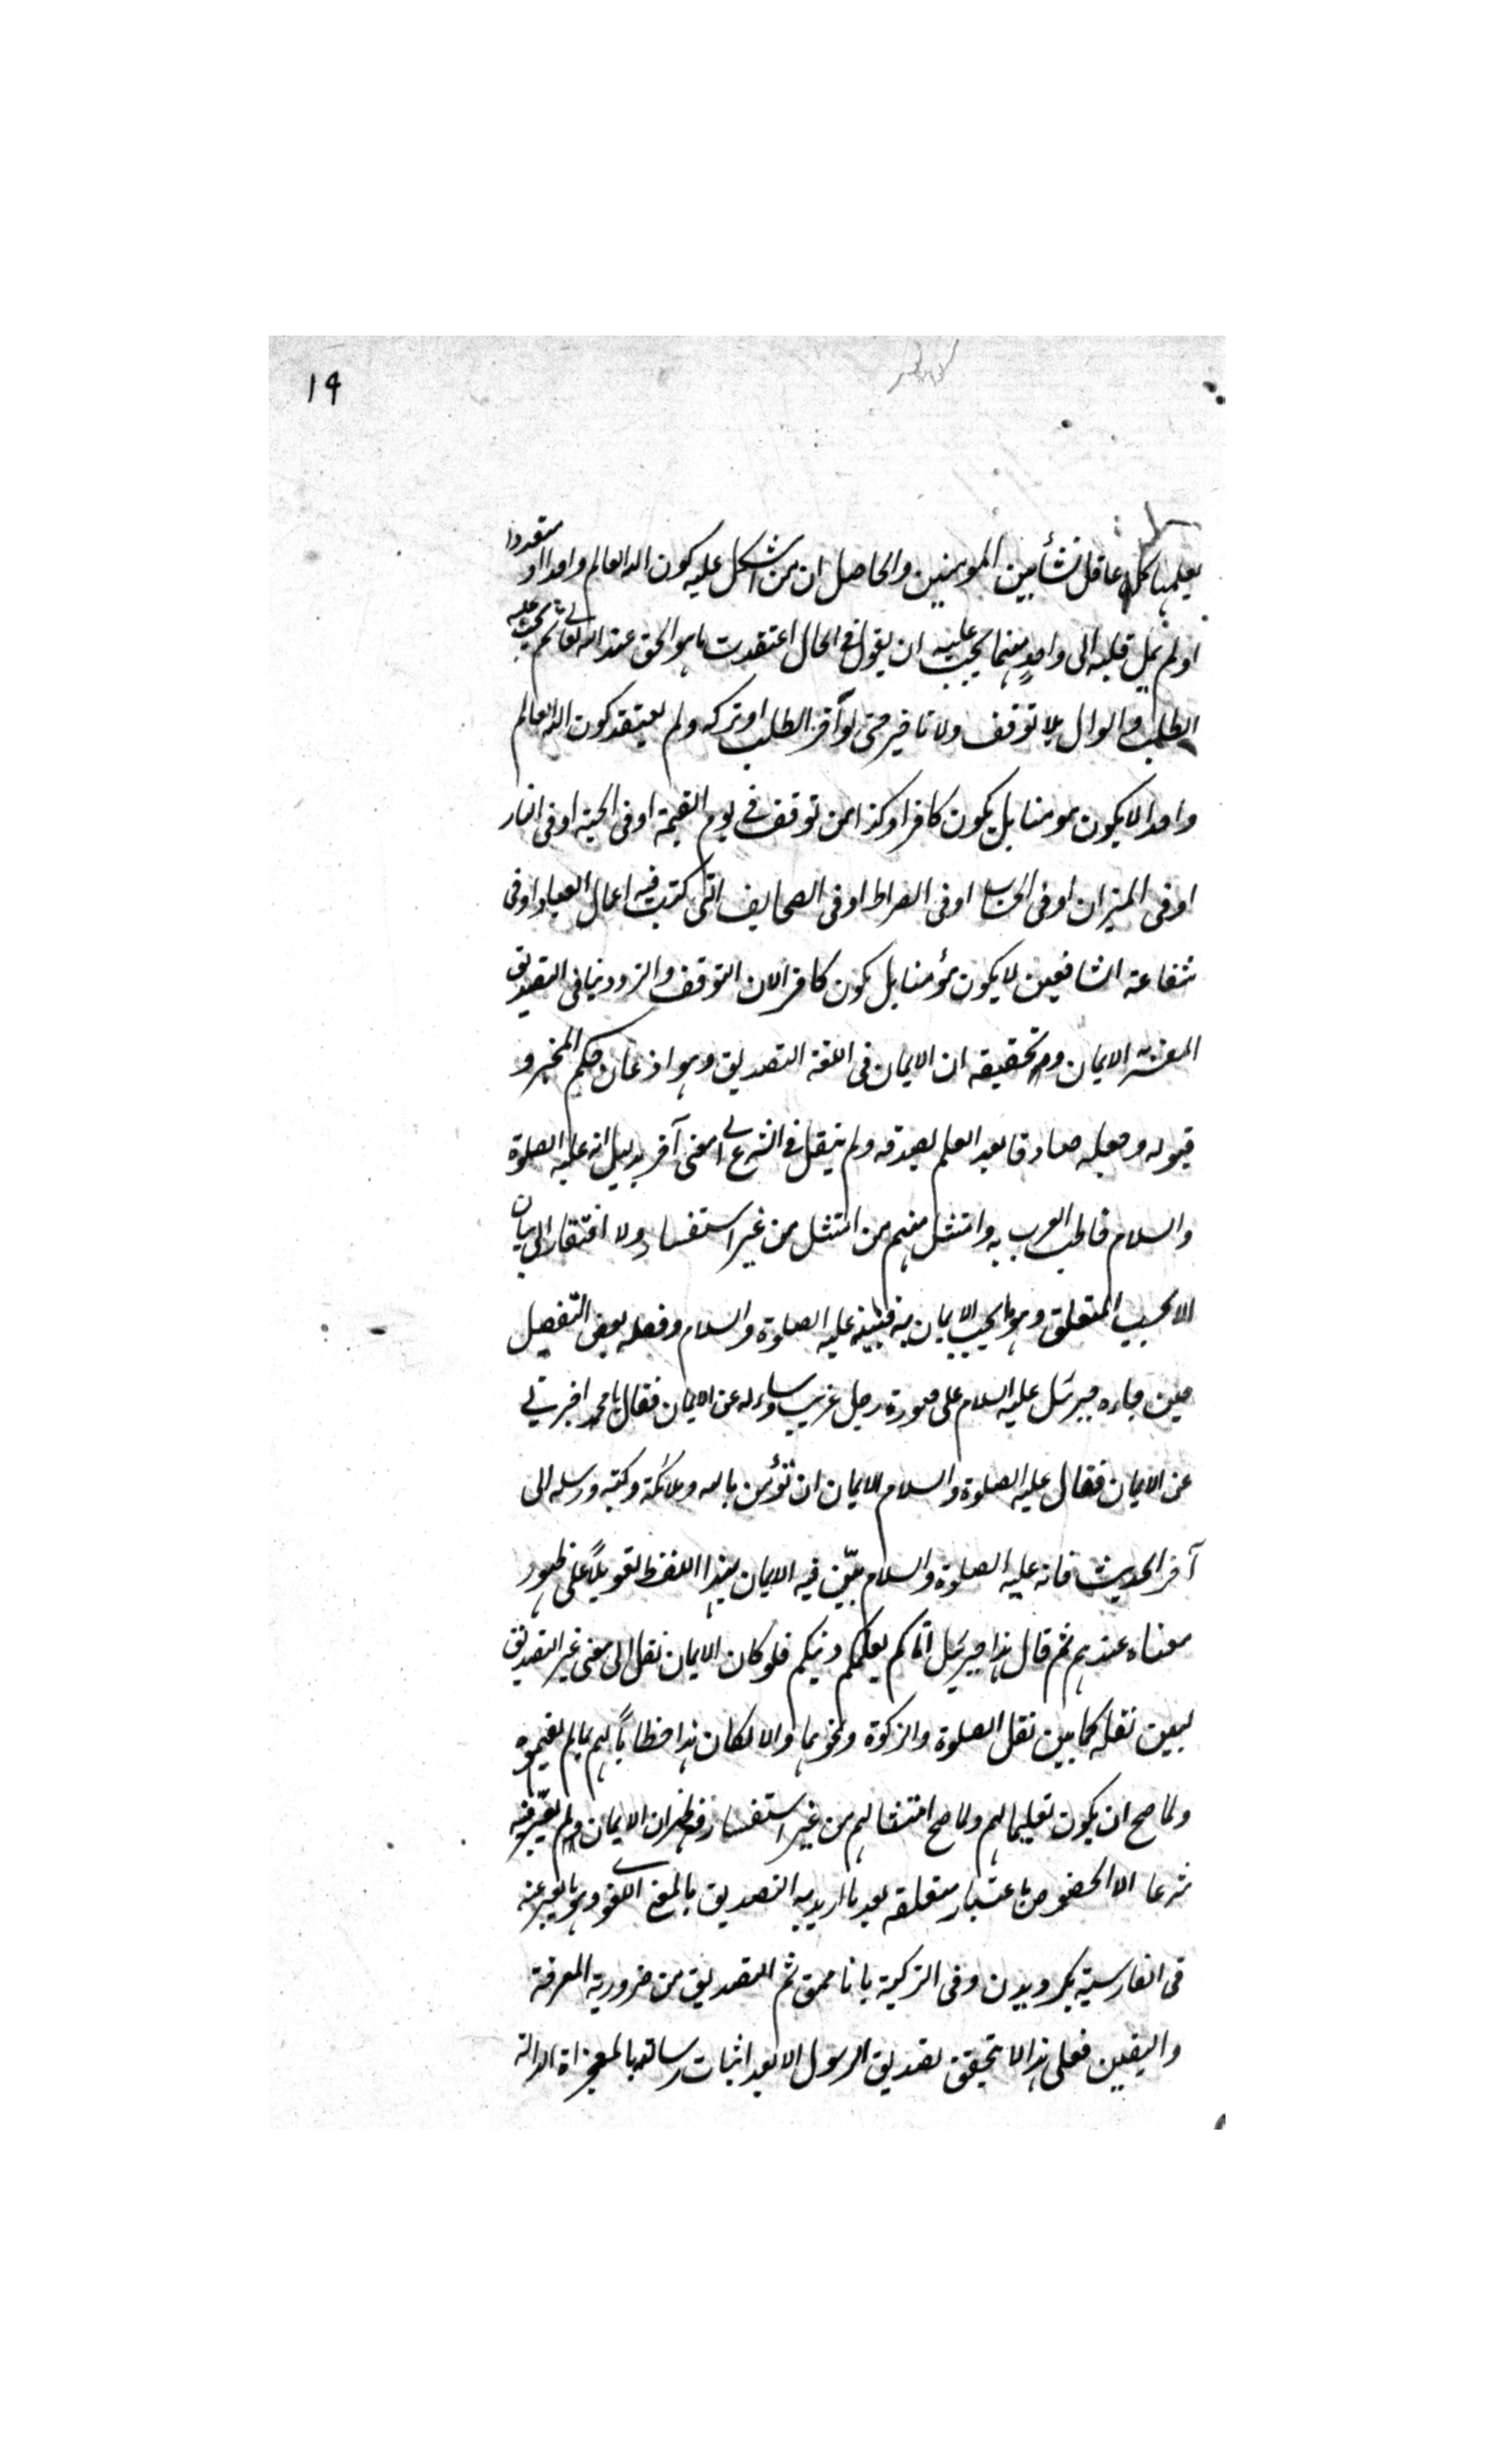 ١٩
يعلمها كل عاقل نشأ بين المومنين والحاصل ان من اشكل عليه كون اله العالم واحدا او متعددا
او لم يمل قلبه الى واحد منهما يجب عليه ان يقول فى الحال اعتقدت ما هو الحق عند الله تعالى ثم يجب عليه
الطلب والسوال بلا توقف ولا تاخير حتى لو آخر الطلب او تركه ولم يعتقد كون اله العالم
واحدا لا يكون مومنا بل يكون كافرا وكذا من توقف فى يوم القيمة او فى الجنة او فى النار
او فى الميزان او فى الحساب او فى الصراط او فى الصحايف التى كتبت فيه اعمال العباد او فى
شفاعة الشافعين لا يكون مؤمنا بل يكون كافرا لان التوقف والتردد ينافى التصديق
المعتبر الايمان وتحقيقه ان الايمان فى اللغة التصديق وهو اذعان حكم المخبر و
قبوله وجعله صادقا بعد العلم بصدقه ولم ينقل فى الشرع الى معنى آخر بدليل انه عليه الصلوة
والسلام خاطب العرب به وامتثل منهم من امتثل من غير استفسار ولا افتقار الى بيان
الا بحسب المتعلق وهو ما يجب الايمان به فبينه عليه الصلوة والسلام وفصله بعض التفصيل
حين جاءه جبرئل عليه السلام على صورة رجل غريب وساءله عن الايمان فقال يا محمد اخبرنى
عن الايمان فقال عليه الصلوة والسلام الايمان ان تؤمن بالله وملائكة وكتبه ورسله الى
آخر الحديث فانه عليه الصلوة والسلام بيّن فيه الايمان بهذا اللفظ تعويلاً على ظهور
معناه عندهم ثم قال هذا جبريل اتاكم يعلمكم دينكم فلو كان الايمان نقل الى معنى غير التصديق
لبين نقله كما بين نقل الصلوة والزكوة ونحوهما والا لكان هذا خطاباً لهم بما لم يفهموه
ولما صح ان يكون تعليما لهم ولما صح امتثالهم من غير استفسار فظهر ان الايمان لم يعتبر فيه
شرعا الا الخصوص باعتبار متعلقه بعد ما اريد به التصديق بالمعنى اللغوى وهو ما يعبر عنه
فى الفارسية بكرويدن وفى التركية بانانمق ثم التصديق من ضرورية المعرفة
واليقين فعلى هذا لا يتحقق تصديق الرسول الا بعد اثبات رسالته بالمعجزاة الدالة